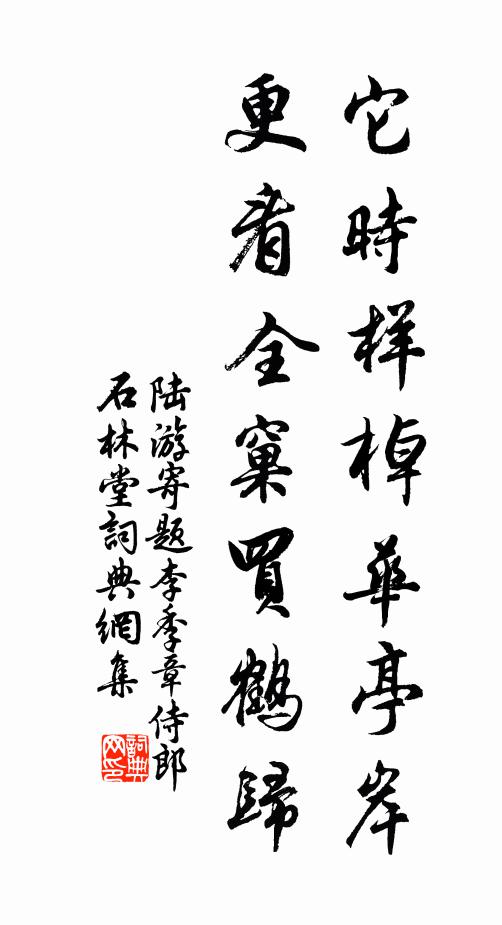 它時样棹華亭岸
更看全窠買鶴歸
陸游寄題李季章侍郎
石林堂詞典網集
詞典网印